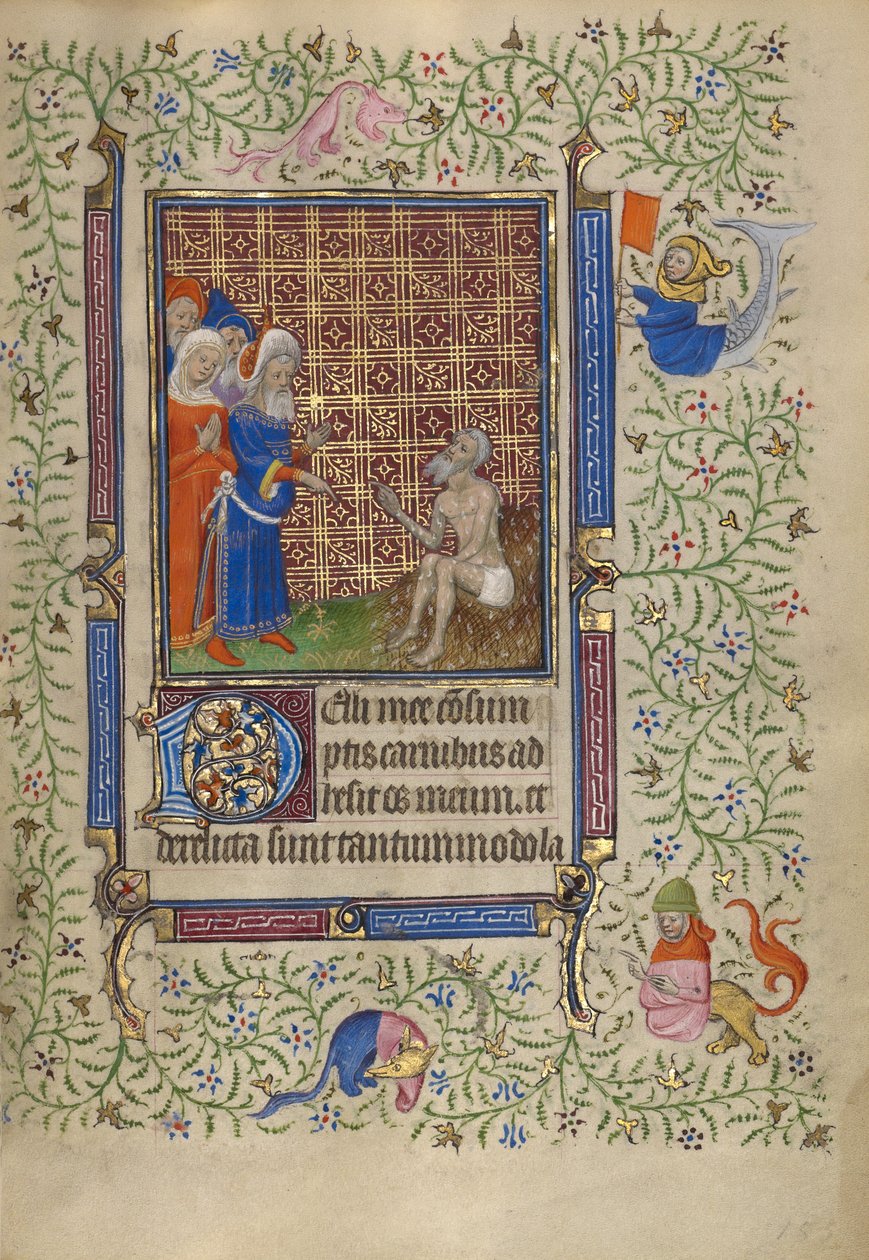 Pelli mee cōsum
ptis carnibus ad
hesit os meum. et
derelicta sunt tantummodo la